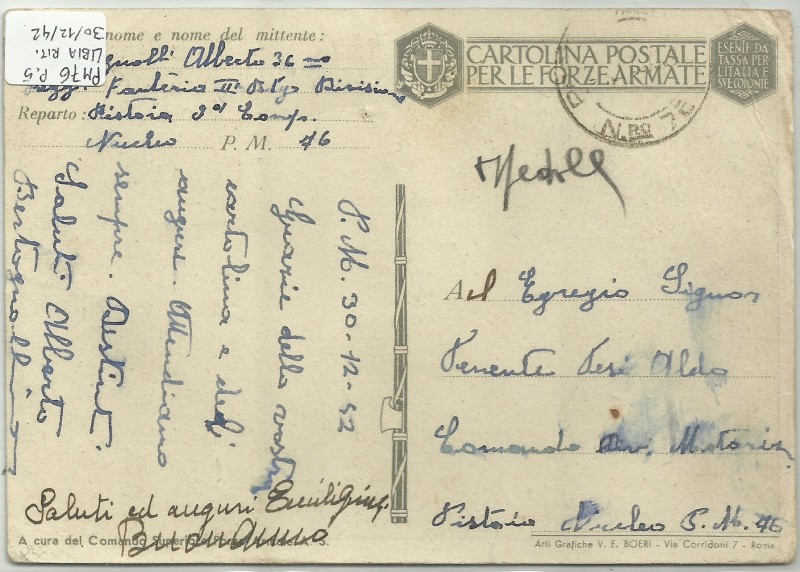 PM 76 P.5
LIBIA RIT.
30/12/42
nome e nome del mittente:
Alberto 36
Fanteria Divisione
Reparto: Pistoia Comp.
Nucleo P. M. 46
CARTOLINA POSTALE
PER LE FORZE ARMATE
ESENTE DA
TASSA PER
L'ITALIA E
SVE COLONIE
P. M. 30-12-42
Grazie della vostra
cartolina e degli
auguri. Attendiamo
sempre. Distinti
Saluti Alberto
Bertagnolli
Saluti ed auguri
Buon anno
Al Egregio Signor
Tenente Aldo
Comando Div. Motoriz.
Pistoia Nucleo P. M. 46
A cura del Comando Superiore Forze Armate A. S.
Arti Grafiche V. E. BOERI - Via Corridoni 7 - Roma